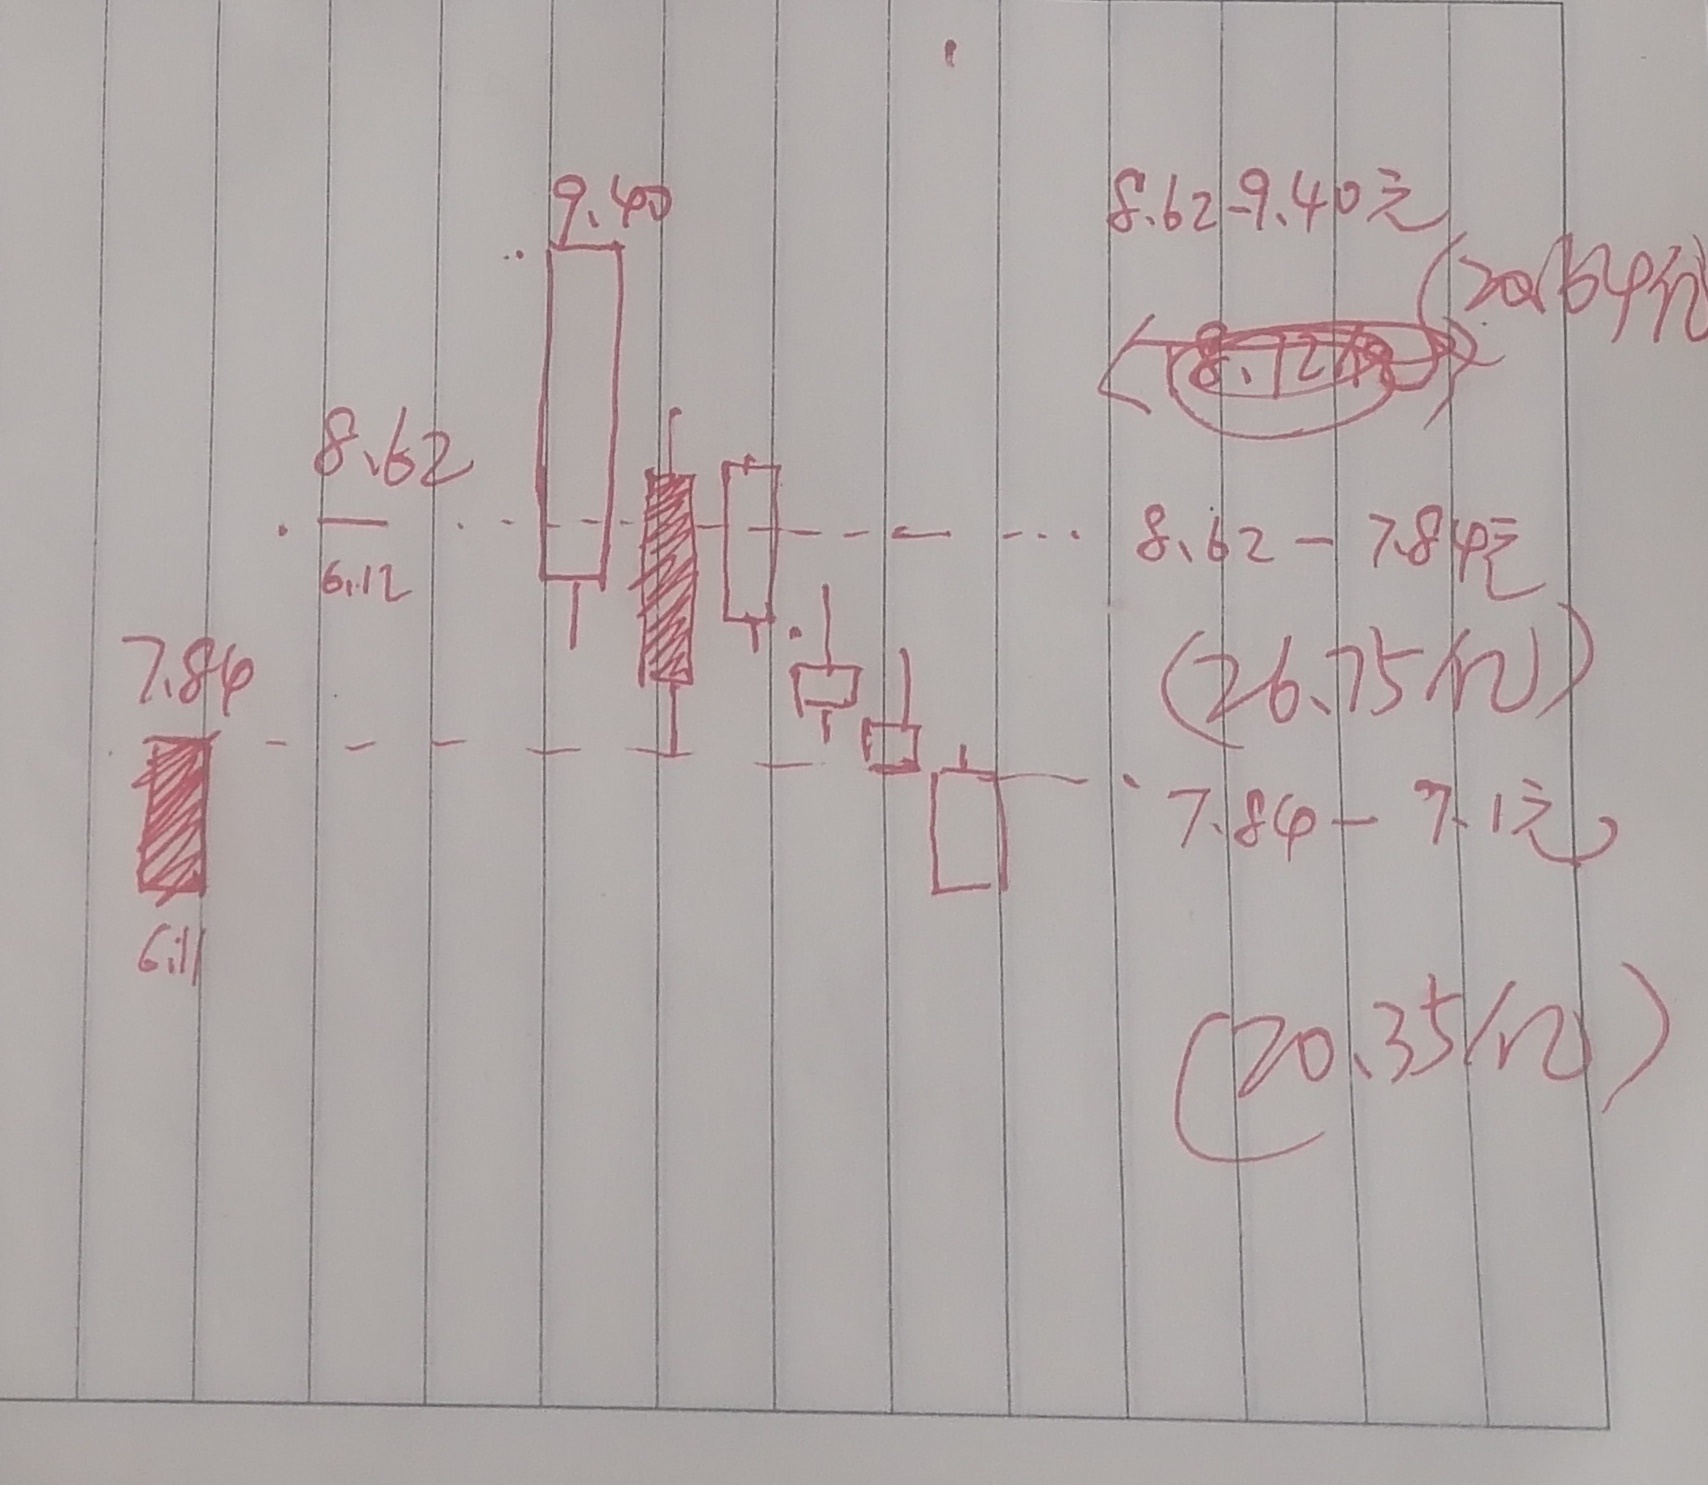 9.40
8.62
6.12
7.84
6.11
8.62-9.40元
(20.64亿)
8.62-7.84元
(26.75/亿)
7.84-7.1元
(20.35/亿)